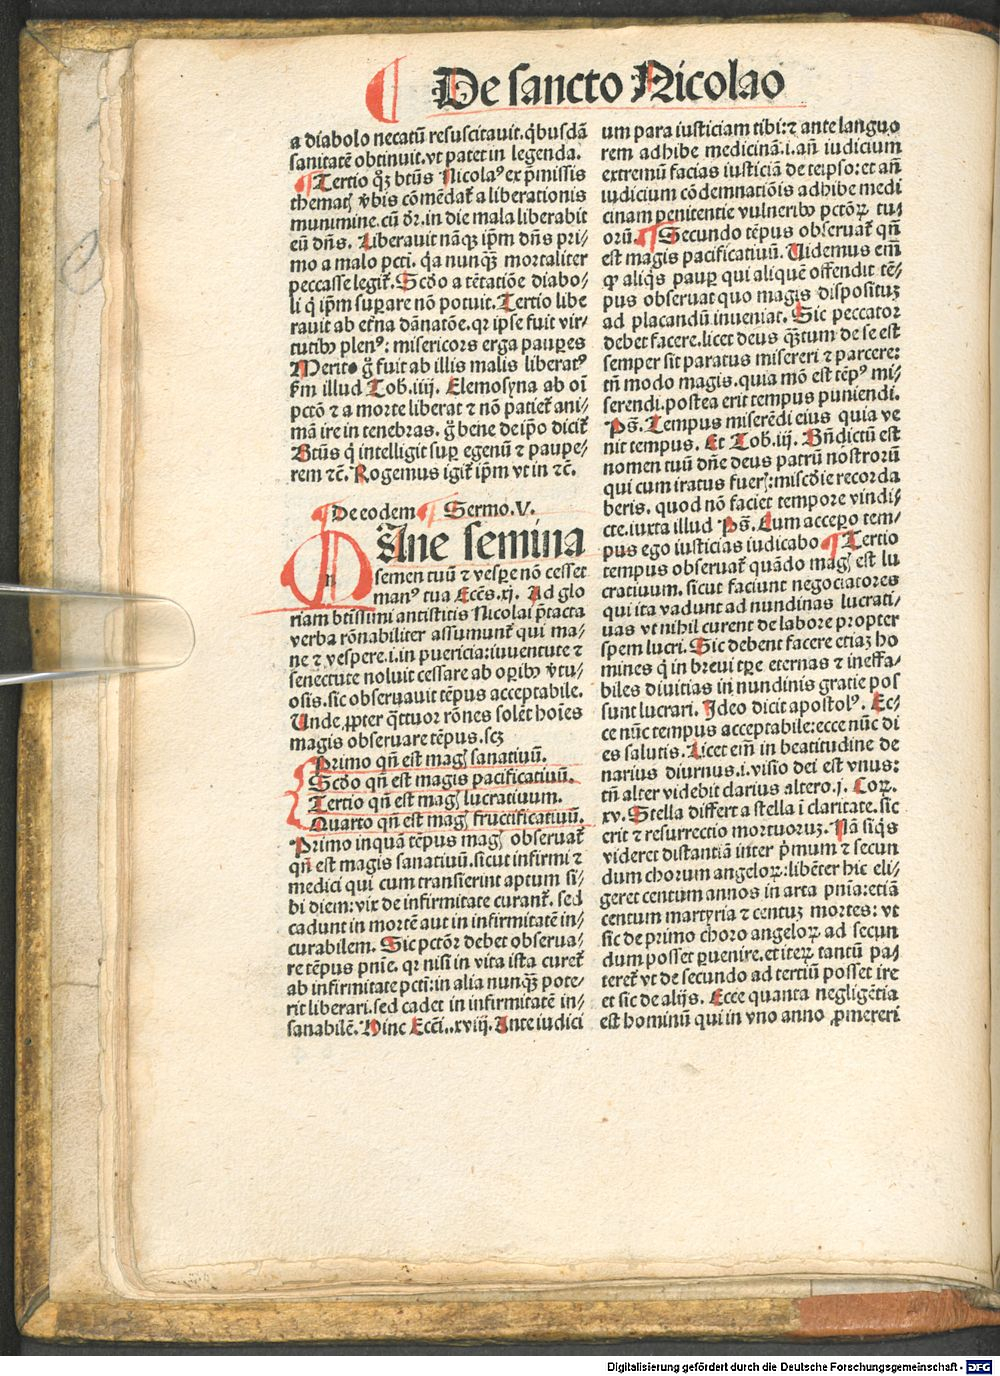 De sancto Nicolao
a diabolo necatū resuscitauit. q̇busdā
sanitatē obtinuit. vt patet in legenda.
Tertio q̄ȝ btūs Nicolaꝰ ex p̄missis
themaꝭ v̄bis cōmēdat᷑ a liberationis
munimine. cū dr̄. in die mala liberabit
eū dn̄s. Liberauit nāqꝫ ip̄m dn̄s pri/
mo a malo pcti. q̇a nunqꝫ̄ mortaliter
peccasse legit᷑. Scd̄o a tētatiōe diabo/
li q̇ ip̄m suꝑare nōn potuit. Tertio libe
rauit ab et̄na dānatōe. qꝛ ipse fuit vir/
tutibꝰ plenꝰ: misericors erga pauꝑes
Merito g̊ fuit ab illis malis liberatꝰ
ẜm illud Tob. iiij. Elemosyna ab oī
pctō ⁊ a morte liberat ⁊ nō patiet᷑ ani/
mā ire in tenebras. g̊ bene de ip̄o dicit᷑
Btūs q̇ intelligit suꝑ egenū ⁊ paupe/
rem ⁊c̄. Rogemus igit᷑ ip̄m vt in ⁊c̄.
De eodem Sermo. V.
Mane semina
semen tuū ⁊ vesꝑe nō cesset
manꝰ tua Eccs̄. xj. Ad glo
riam btissimi antistitis Nicolai p̄tacta
verba rōnabiliter assumunt᷑ qui ma/
ne ⁊ vespere .i. in puericia: iuuentute ⁊
senectute noluit cessare ab oꝑibꝰ v̓tu/
osis. sic obseruauit tēpus acceptabile.
Unde ꝓpter q̄ttuoꝛ rōnes solēt hoīes
magis obseruare tēpus. scꝫ
Primo qn̄ est magꝭ sanatiuū.
Scd̄o qn̄ est magis pacificatiuū.
Tertio qn̄ est magꝭ lucratiuum.
Quarto qn̄ est magꝭ fructificatiuū.
Primo inquā tēpus magꝭ obseruat᷑
qn̄ est magis sanatiuū. sicut infirmi ⁊
medici qui cum transierint aptum si/
bi diem: vix de infirmitate curant᷑. sed
cadunt in mortē aut in infirmitatē in/
curabilem. Sic pctōꝛ debet obserua/
re tēpus pnīe. qꝛ nisi in vita ista curet᷑
ab infirmitate pcti: in alia nunqꝫ̄ pote/
rit liberari. sed cadet in infirmitatē in/
sanabilē. Hinc Ecci. xviij. Ante iudici
um para iusticiam tibi: ⁊ ante languo
rem adhibe medicinā .i. an̄ iudicium
extremū facias iusticiā de teipso: et an̄
iudicium cōdemnatiōis adhibe medi
cinam penitentie vulneribꝰ pctōꝝ tu/
orū. Secundo tēpus obseruat᷑ qn̄
est magis pacificatiuū. Uidemus em̄
ꝙ aliq̇s pauꝑ qui aliquē offendit tē/
pus obseruat quo magis dispositūꝫ
ad placandū inueniat. Sic peccator
debet facere. licet deus qꝫ̄tum de se est
semper sit paratus misereri ⁊ parcere:
tn̄ modo magis. quia mō est tēpꝰ mi/
serendi. postea erit tempus puniendi.
Ps̄. Tempus miserēdi eius quia ve
nit tempus. Et Tob. iij. Bn̄dictū est
nomen tuū dn̄e deus patrū nostrorū
qui cum iratus fuerꝭ: miscd̄ie recorda
beris. quod nō faciet tempore vindi/
cte. iuxta illud Ps̄. Cum accepo tem/
pus ego iusticias iudicabo Tertio
tempus obseruat᷑ quādo magꝭ est lu
cratiuum. sicut faciunt negociatores
qui ita vadunt ad nundinas lucrati/
uas vt nihil curent de labore propter
spem lucri. Sic debent facere etiaꝫ ho
mines q̇ in breui tꝑe eternas ⁊ ineffa/
biles diuitias in nundinis gratie pos
sunt lucrari. Ideo dicit apostolꝰ. Ec/
ce nūc tempus acceptabile: ecce nūc di
es salutis. Licet em̄ in beatitudine de
narius diurnus .i. visio dei est vnus:
tn̄ alter videbit clarius altero. j. Coꝝ.
xv. Stella differt a stella ī claritate. sic
erit ⁊ resurrectio mortuoruꝫ. Nā siq̇s
videret distantiā inter p̄mum ⁊ secun
dum chorum angeloꝝ: libēter hic eli/
geret centum annos in arta pnīa: etiā
centum martyria ⁊ centuꝫ mortes: vt
sic de primo choro angeloꝝ ad secun
dum posset ꝑuenire. et iteꝝ tantū pa/
teret᷑ vt de secundo ad tertiū posset ire
et sic de alijs. Ecce quanta negligētia
est hominū qui in vno anno ꝓmereri
Digitalisierung gefördert durch die Deutsche Forschungsgemeinschaft - DFG